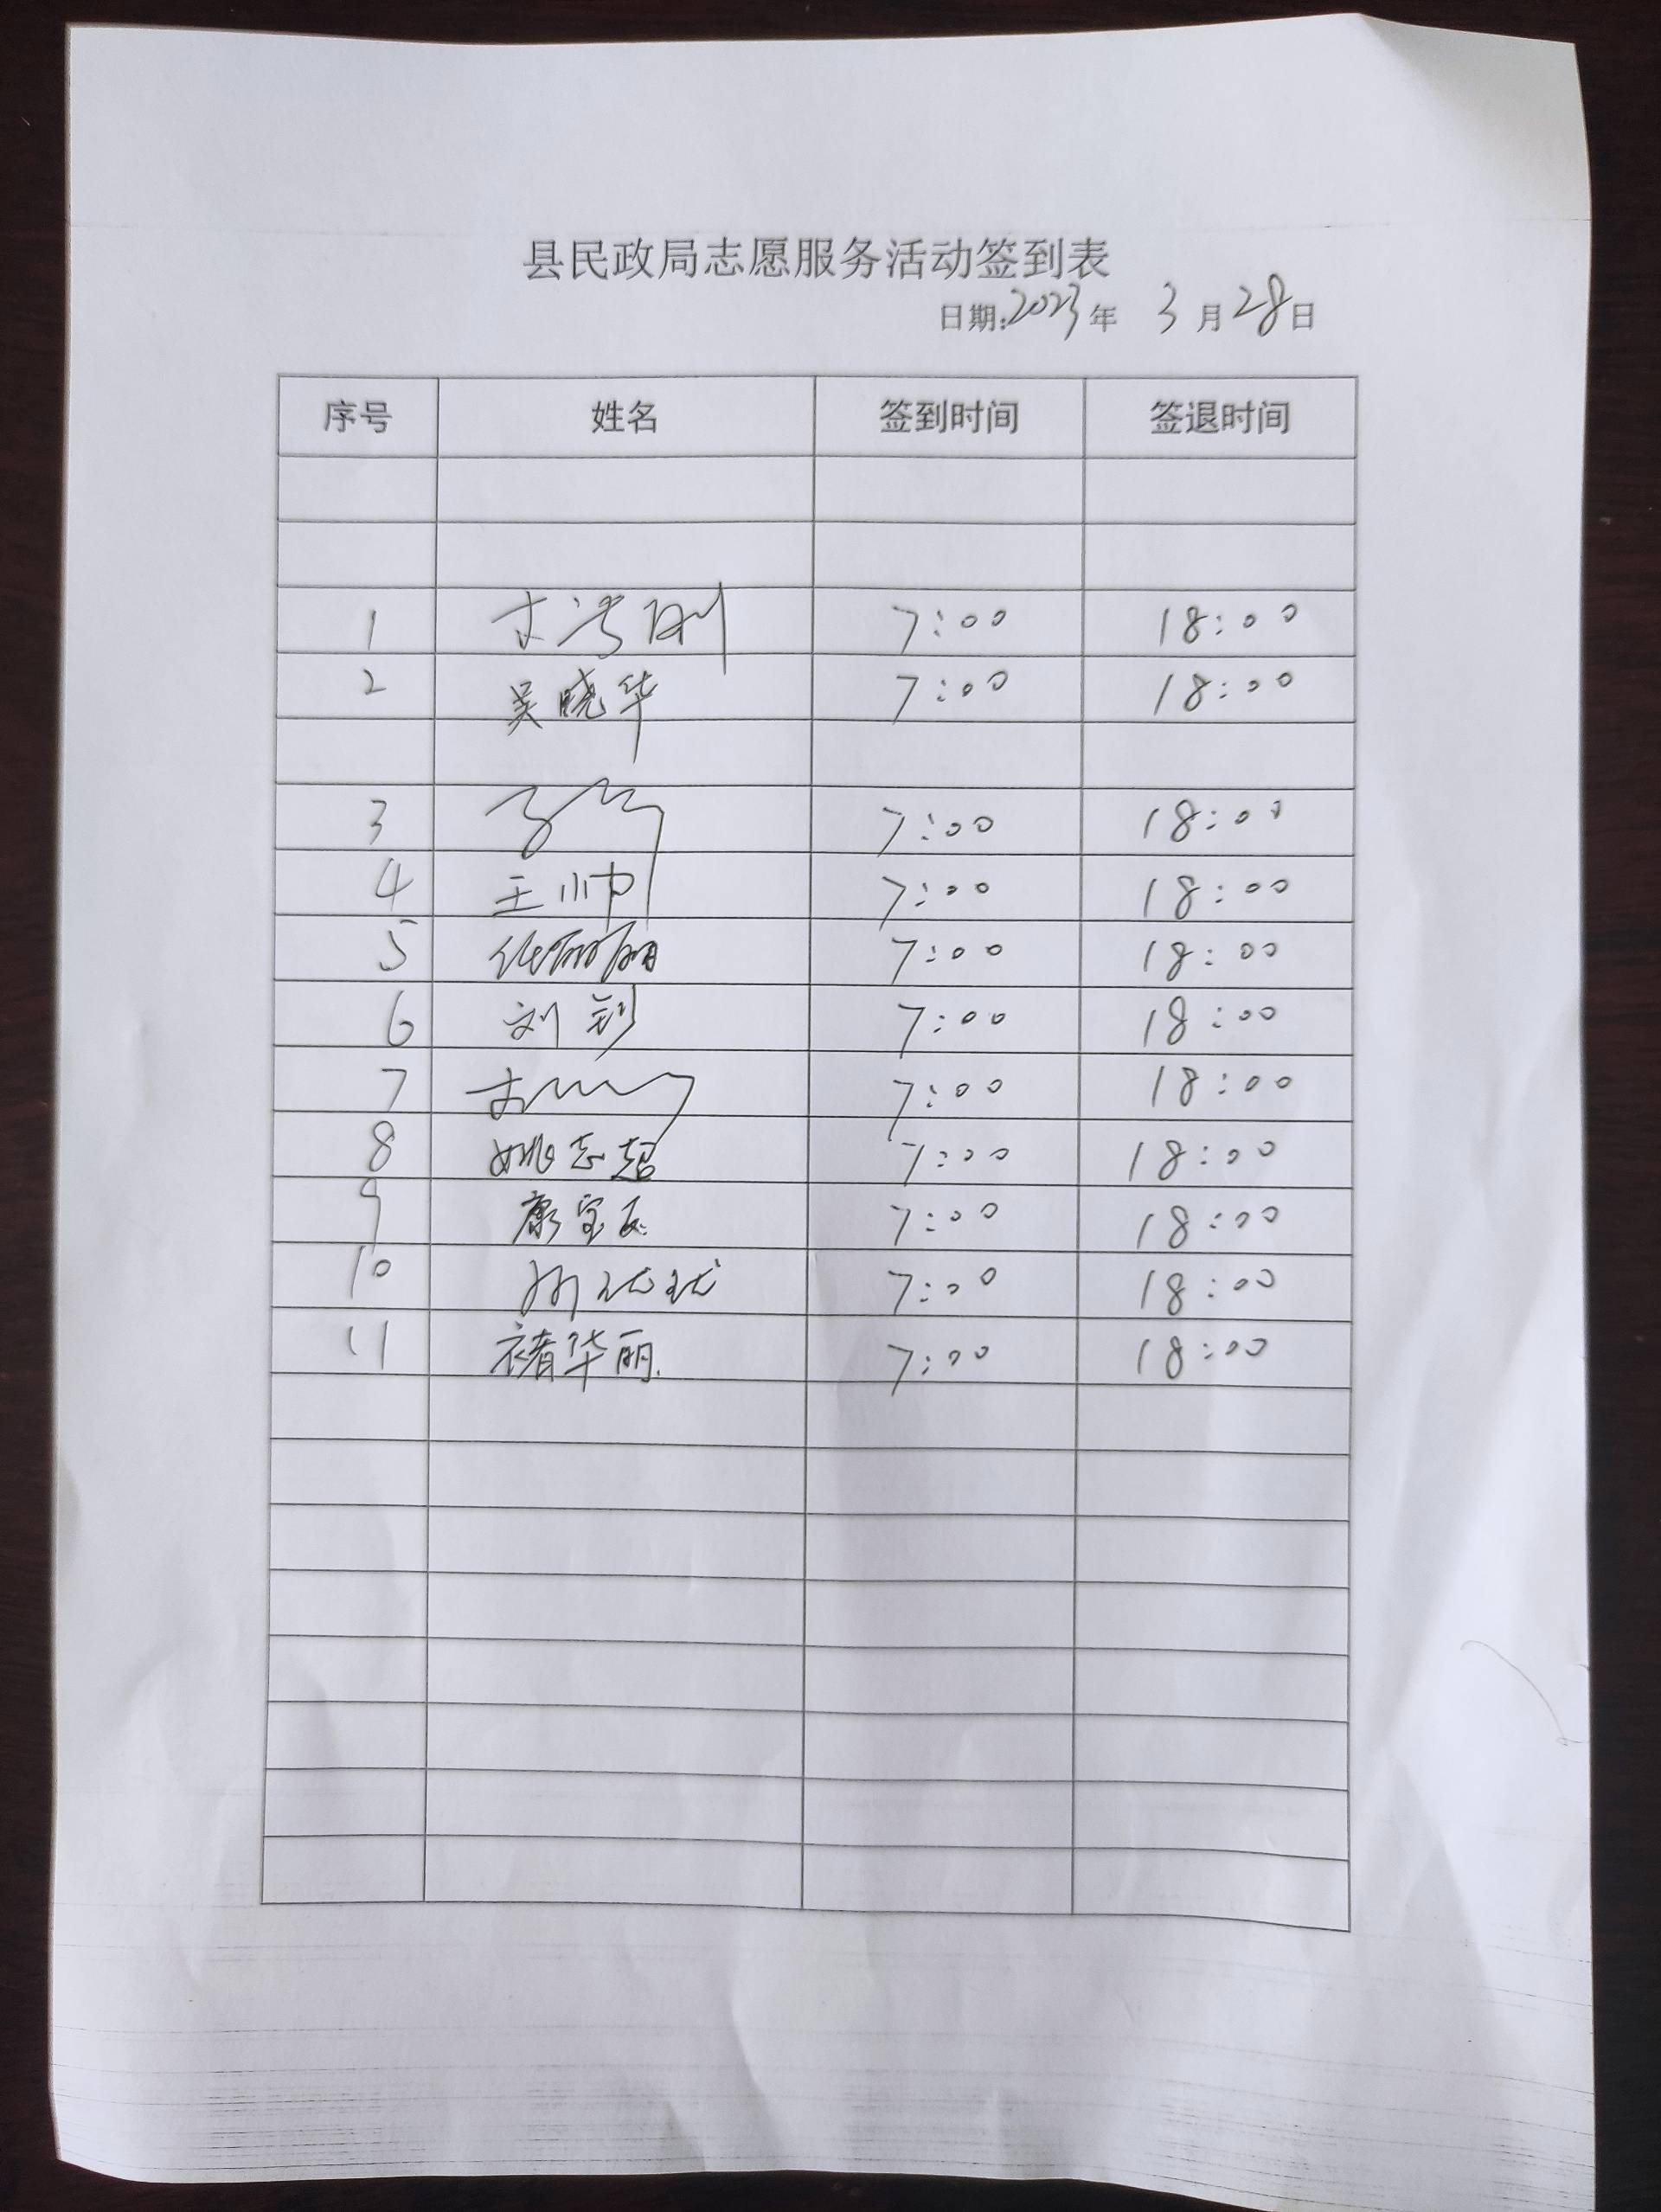 县民政局志愿服务活动签到表
日期:2023年 3月28日
序号 姓名 签到时间 签退时间
1 7:00 18:00
2 吴晓华 7:00 18:00
3 7:00 18:00
4 王帅 7:00 18:00
5 7:00 18:00
6 刘钊 7:00 18:00
7 7:00 18:00
8 姚志超 7:00 18:00
9 康宝 7:00 18:00
10 7:00 18:00
11 褚华丽 7:00 18:00